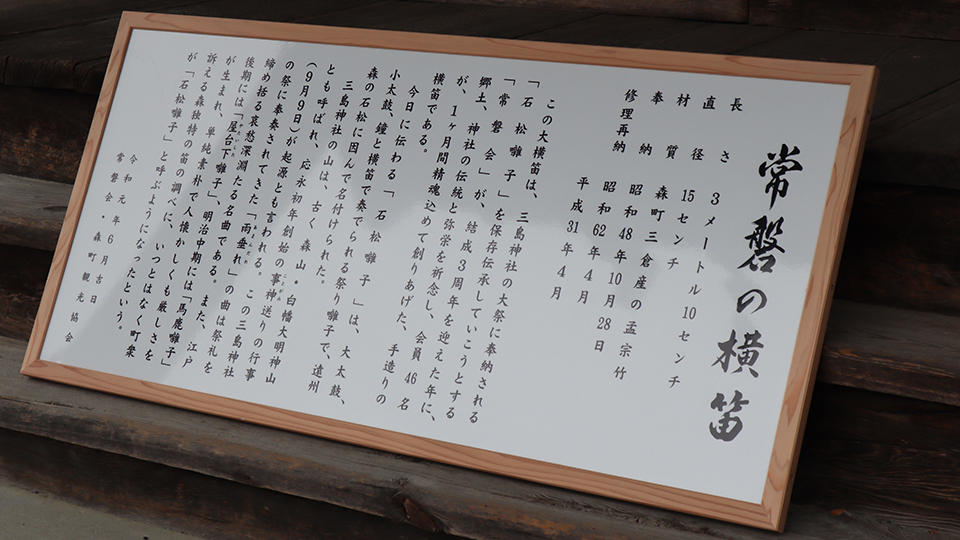 常磐の横笛
長さ 3メートル10センチ
直径 15センチ
材質 森町三倉産の孟宗竹
奉納 昭和48年10月28日
修理再納 昭和62年4月
平成31年4月
この大横笛は、三島神社の大祭に奉納される
「石松囃子」を保存伝承していこうとする
「常磐会」が、結成3周年を迎えた年に、
郷土、神社の伝統と弥栄を祈念し、会員46名
が、1ヶ月間精魂込めて創りあげた、手造りの
横笛である。
今日に伝わる「石松囃子」は、大太鼓、
小太鼓、鐘と横笛で奏でられる祭り囃子で、遠州
森の石松に因んで名付けられた。
三島神社の山は、古く森山・白幡大明神山
とも呼ばれ、応永初年創始の事神送りの行事
(9月9日)が起源とも言われる。この三島神社
の祭に奉奏されてきた「雨垂れ」の曲は祭礼を
締め括る哀愁深淵たる名曲である。また、江戸
後期には「屋台下囃子」、明治中期には「馬鹿囃子」
が生まれ、単純素朴で人懐かしくも厳しさを
訴える森独特の笛の調べに、いつとはなく町衆
が「石松囃子」と呼ぶようになったという。
令和元年6月吉日
常磐会・森町観光協会